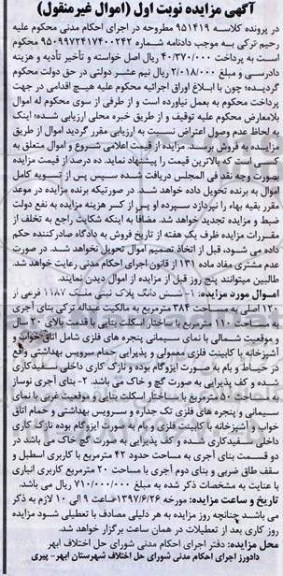 آگهی مزایده نوبت اول (اموال غیرمنقول)
در پرونده کلاسه ۹۵۱۴۱۹ مطروحه در اجرای احکام مدنی محکوم علیه
رحیم ترکی به موجب دادنامه شماره ۹۵۰۹۹۷۲۴۱۷۴۰۰۲۴۲ محکوم
است به پرداخت ۴۰/۲۷۰/۰۰۰ ریال اصل خواسته و تأخیر تأدیه و هزینه
دادرسی و مبلغ ۲/۰۱۸/۰۰۰ ریال نیم عشر دولتی در حق دولت محکوم
گردیده؛ چون با ابلاغ اوراق اجرائیه محکوم علیه هیچ اقدامی در جهت
پرداخت محکوم به بعمل نیاورده است و از طرفی از سوی محکوم له اموال
بلامعارض محکوم علیه توقیف و از طریق خبره محلی ارزیابی شده؛ اینک
به لحاظ عدم وصول اعتراض نسبت به ارزیابی مقرر گردید اموال از طریق
مزایده به فروش برسد. مزایده از قیمت اعلامی شروع و اموال متعلق به
کسی است که بالاترین قیمت را پیشنهاد نماید. ده درصد از قیمت مزایده
بصورت وجه نقد فی المجلس دریافت شده سپس پس از تسویه کامل
اموال به برنده تحویل داده خواهد شد. در صورتیکه برنده مزایده در موعد
مقرر بقیه بهاء را نپردازد سپرده او پس از کسر هزینه مزایده به نفع دولت
ضبط و مزایده تجدید خواهد شد. مضافا به اینکه شکایت راجع به تخلف از
مقررات مزایده ظرف یک هفته از تاریخ فروش به دادگاه صادرکننده حکم
داده می شود، قبل از اتخاذ تصمیم اموال تحویل نخواهد شد. در صورت
عدم مشتری مفاد ماده ۱۳۱ از قانون اجرای احکام مدنی رعایت خواهد شد.
طالبین میتوانند پنج روز قبل از مزایده از اموال دیدن نمایند.
اموال مورد مزایده: ۱- شش دانگ پلاک ثبتی ملک ۱۱۸۷ فرعی از
۱۲۰ اصلی به مساحت ۳۸۴ مترمربع به مالکیت عبداله ترکی بنای آجری
به مساحت ۱۱۰ مترمربع با ساختار اسکلت بنایی با قدمت بالای ۲۰ سال
و موقعیت شمالی با نمای سیمانی پنجره های فلزی شامل اتاق خواب و
آشپزخانه با کابینت فلزی معمولی و پذیرایی حمام سرویس بهداشتی واقع
در حیاط و بام به صورت ایزوگام بوده و نازک کاری داخلی سفیدکاری
شده و کف پذیرایی به صورت گچ و خاک می باشد. ۲- بنای آجری نوساز
به مساحت مترمربع با ساختار اسکلت بنایی و موقعیت غربی با نمای
سیمانی و پنجره های فلزی تک جداره و سرویس بهداشتی و حمام اتاق
خواب و آشپزخانه با کابینت فلزی و بام به صورت ایزوگام بوده نازک کاری
داخلی سفیدکاری شده و کف پذیرایی به صورت گچ خاک می باشد در
دو قسمت بنای آجری به مساحت حدود ۴۲ مترمربع با کاربری اسطبل و
سقف طاق ضربی و بنای دوم آجری با مساحت ۲۰ مترمربع کاربری انباری
با عنایت به مشخصات ذکر شده به مبلغ ۷۱۰/۰۰۰/۰۰۰ ریال می باشد.
تاریخ و ساعت مزایده: مورخه ۱۳۹۷/۶/۲۶ ساعت ۹ الی ۱۰ لازم به ذکر
می باشد چنانچه روز مزایده به هر دلیلی مصادف با تعطیلی شود مزایده
روز کاری بعد از تعطیلات در همان ساعت برگزار خواهد شد.
محل مزایده: دفتر اجرای احکام مدنی شورای حل اختلاف ابهر
دادورز اجرای احکام مدنی شورای حل اختلاف شهرستان ابهر- پیری